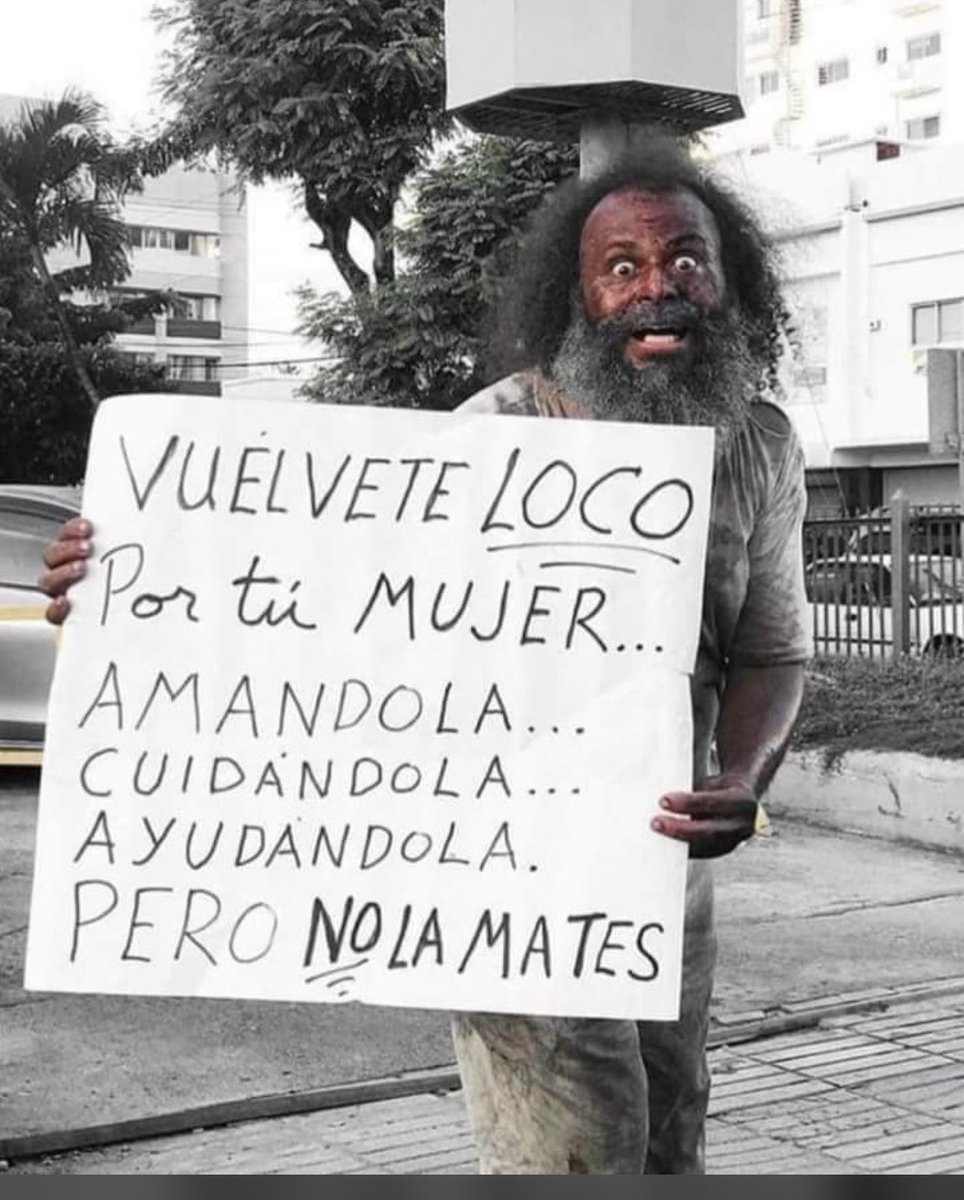 VUÉLVETE LOCO
Por tú MUJER...
AMANDOLA...
CUIDÁNDOLA...
AYUDÁNDOLA.
PERO NO LA MATES